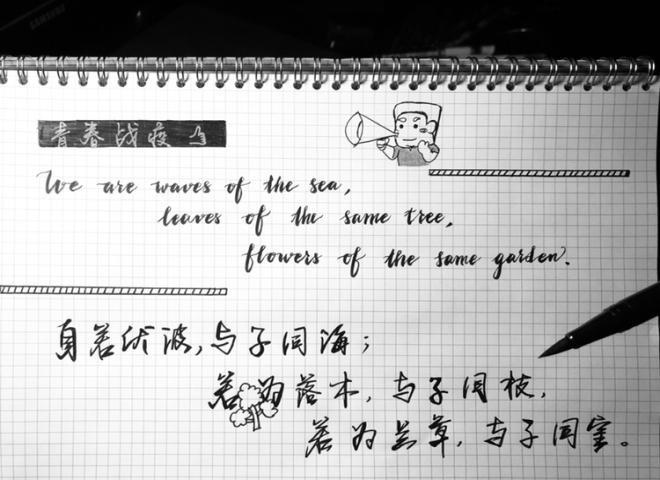 青春战疫
We are waves of the sea,
leaves of the same tree,
flowers of the same garden.
身若伏波,与子同海;
若为落木,与子同枝,
若为兰草,与子同室。